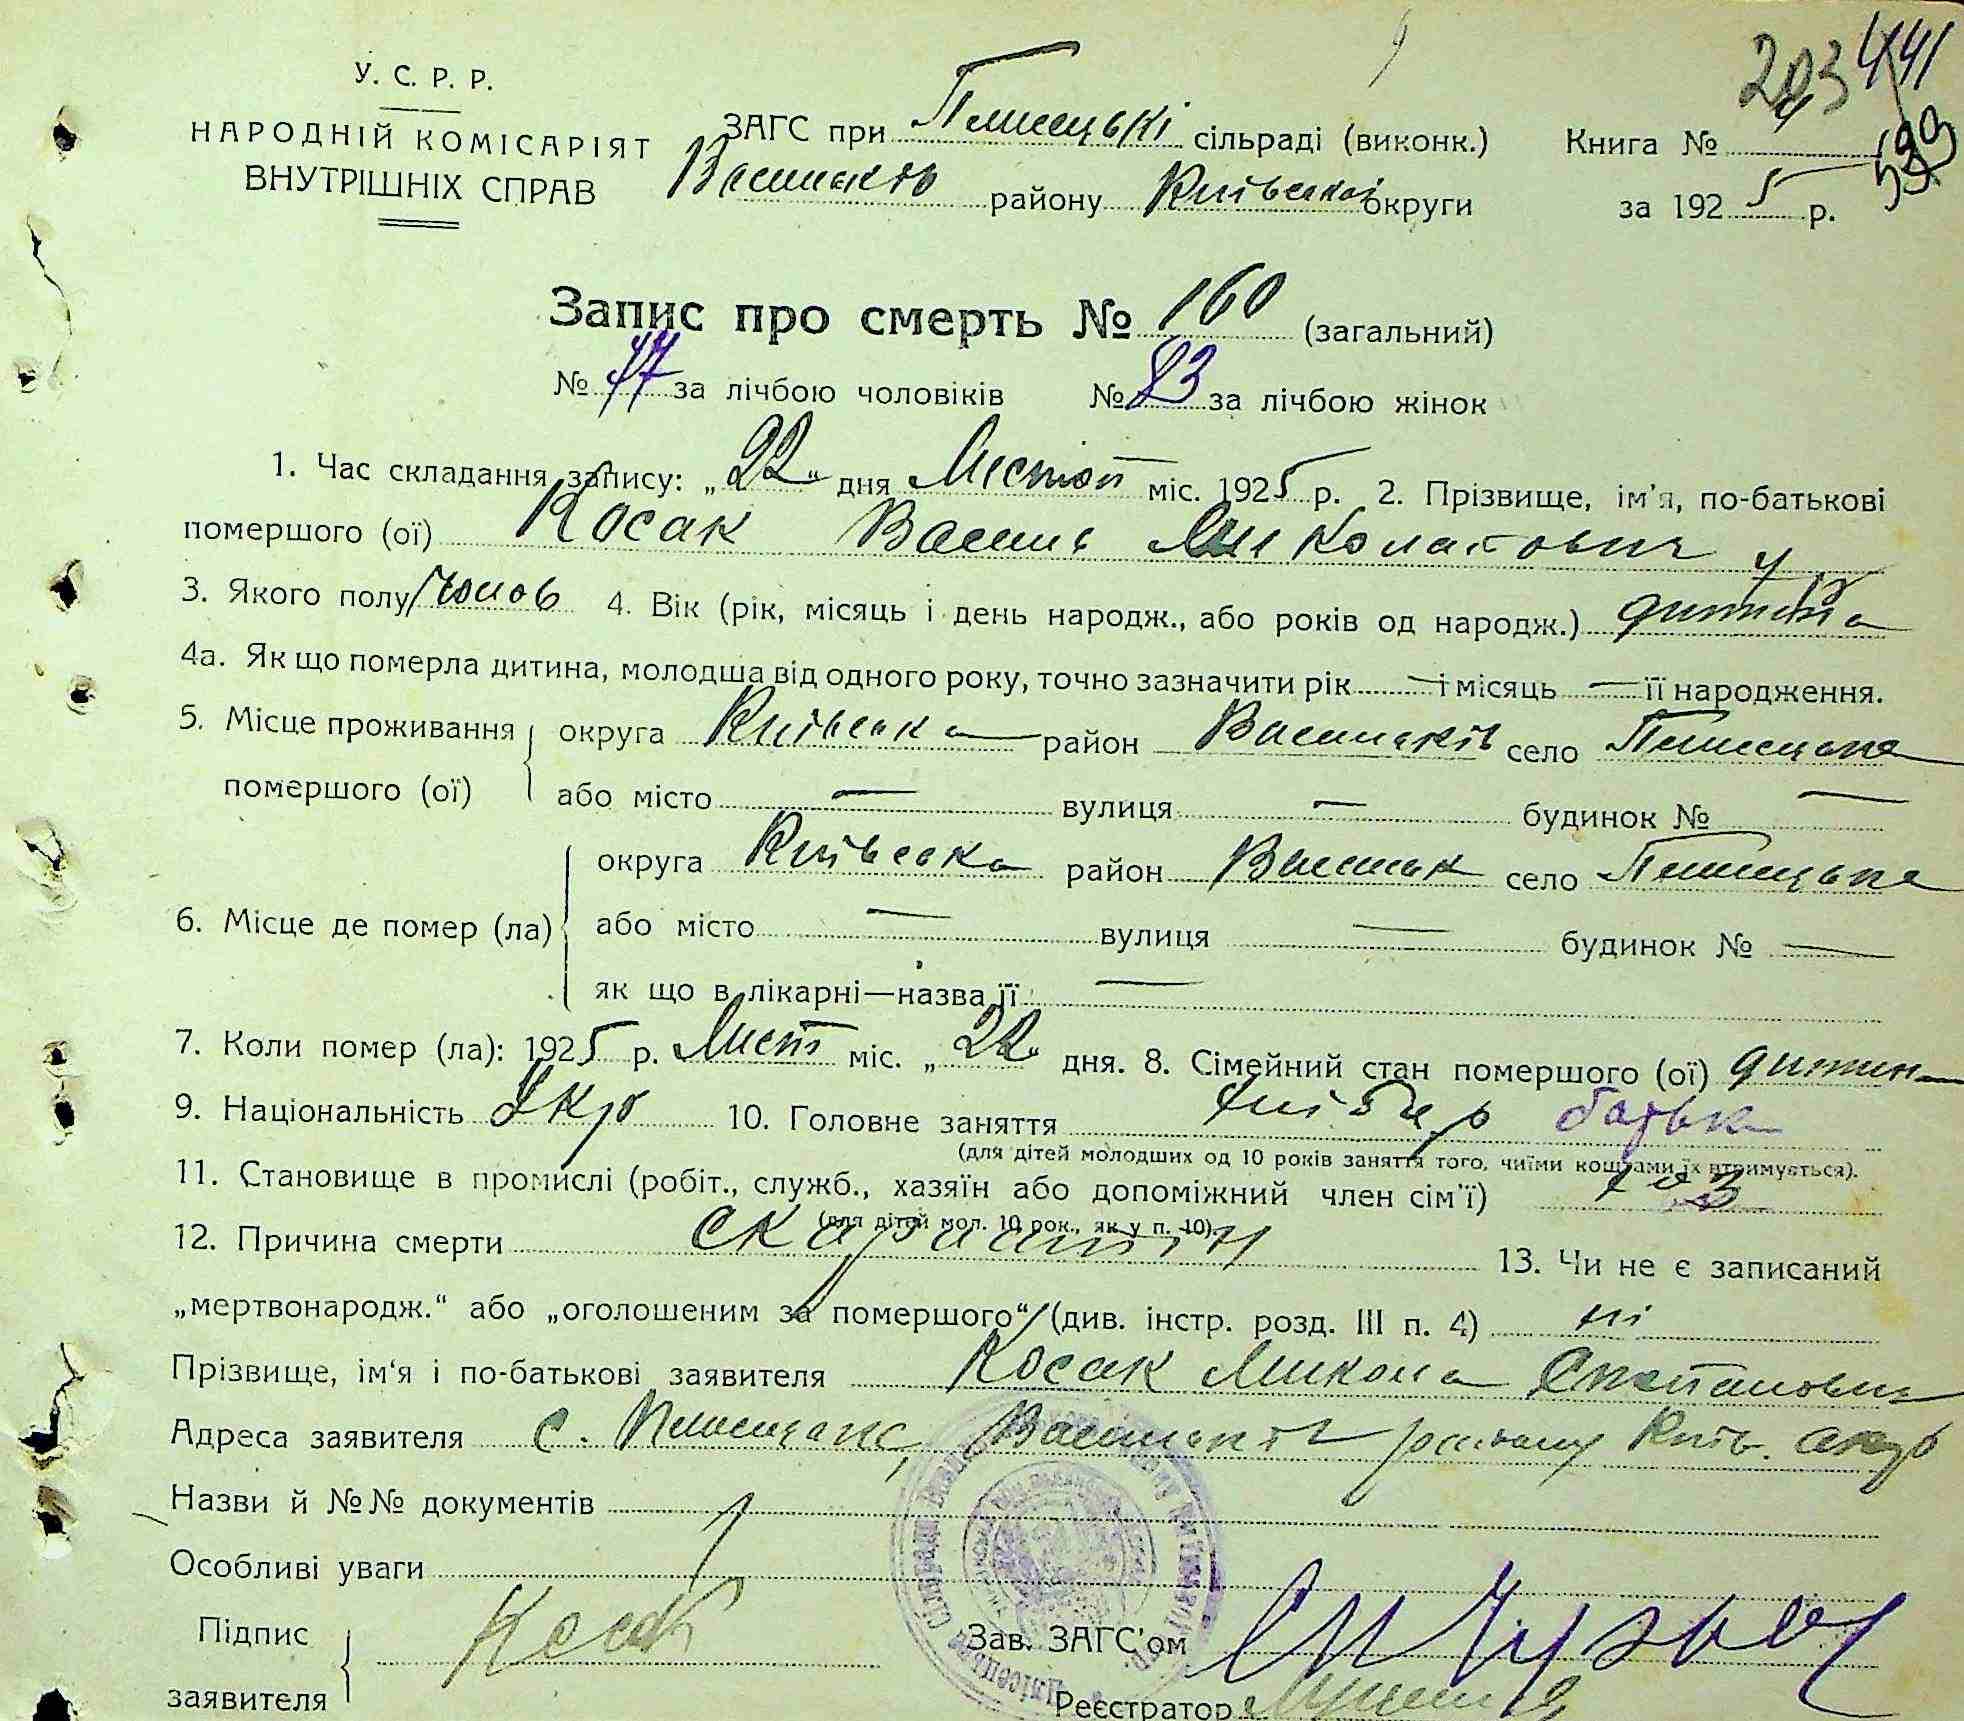 У. С. Р. Р.
НАРОДНІЙ КОМІСАРІЯТ
ВНУТРІШНІХ СПРАВ
ЗАГС при Плисецькі сільраді (виконк.)
Васильків району Київської округи
Книга №
за 1925 р.
441
Запис про смерть № 160 (загальний)
№ 77 за лічбою чоловіків № 83 за лічбою жінок
1. Час складання запису: „22“ дня Листоп міс. 1925 р. 2. Прізвище, ім'я, по-батькові
помершого (ої) Косак Василь Миколайович
3. Якого полу чолов 4. Вік (рік, місяць і день народж., або років од народж.)
4а. Як що померла дитина, молодша від одного року, точно зазначити рік — і місяць — її народження.
5. Місце проживання помершого (ої) округа Київська район Васильків село Плисецьке
або місто — вулиця — будинок № —
6. Місце де помер (ла) округа Київська район Васильк село Плисецьке
або місто — вулиця — будинок № —
як що в лікарні—назва її —
7. Коли помер (ла): 1925 р. Лист міс. „22“ дня. 8. Сімейний стан помершого (ої) дитина
9. Національність Укр 10. Головне заняття хлібор батька
(для дітей молодших од 10 років заняття того, чиїми коштами їх втримується).
11. Становище в промислі (робіт., служб., хазяїн або допоміжний член сім'ї) хаз
(для дітей мол. 10 рок., як у п. 10).
12. Причина смерти скарлатін 13. Чи не є записаний
„мертвонародж.“ або „оголошеним за помершого“ (див. інстр. розд. III п. 4) ні
Прізвище, ім'я і по-батькові заявителя Косак Микола Степанович
Адреса заявителя с. Плисецьке, Васильків району Київ. округ
Назви й №№ документів
Особливі уваги
Підпис заявителя Косак
Зав. ЗАГС'ом
Реєстратор